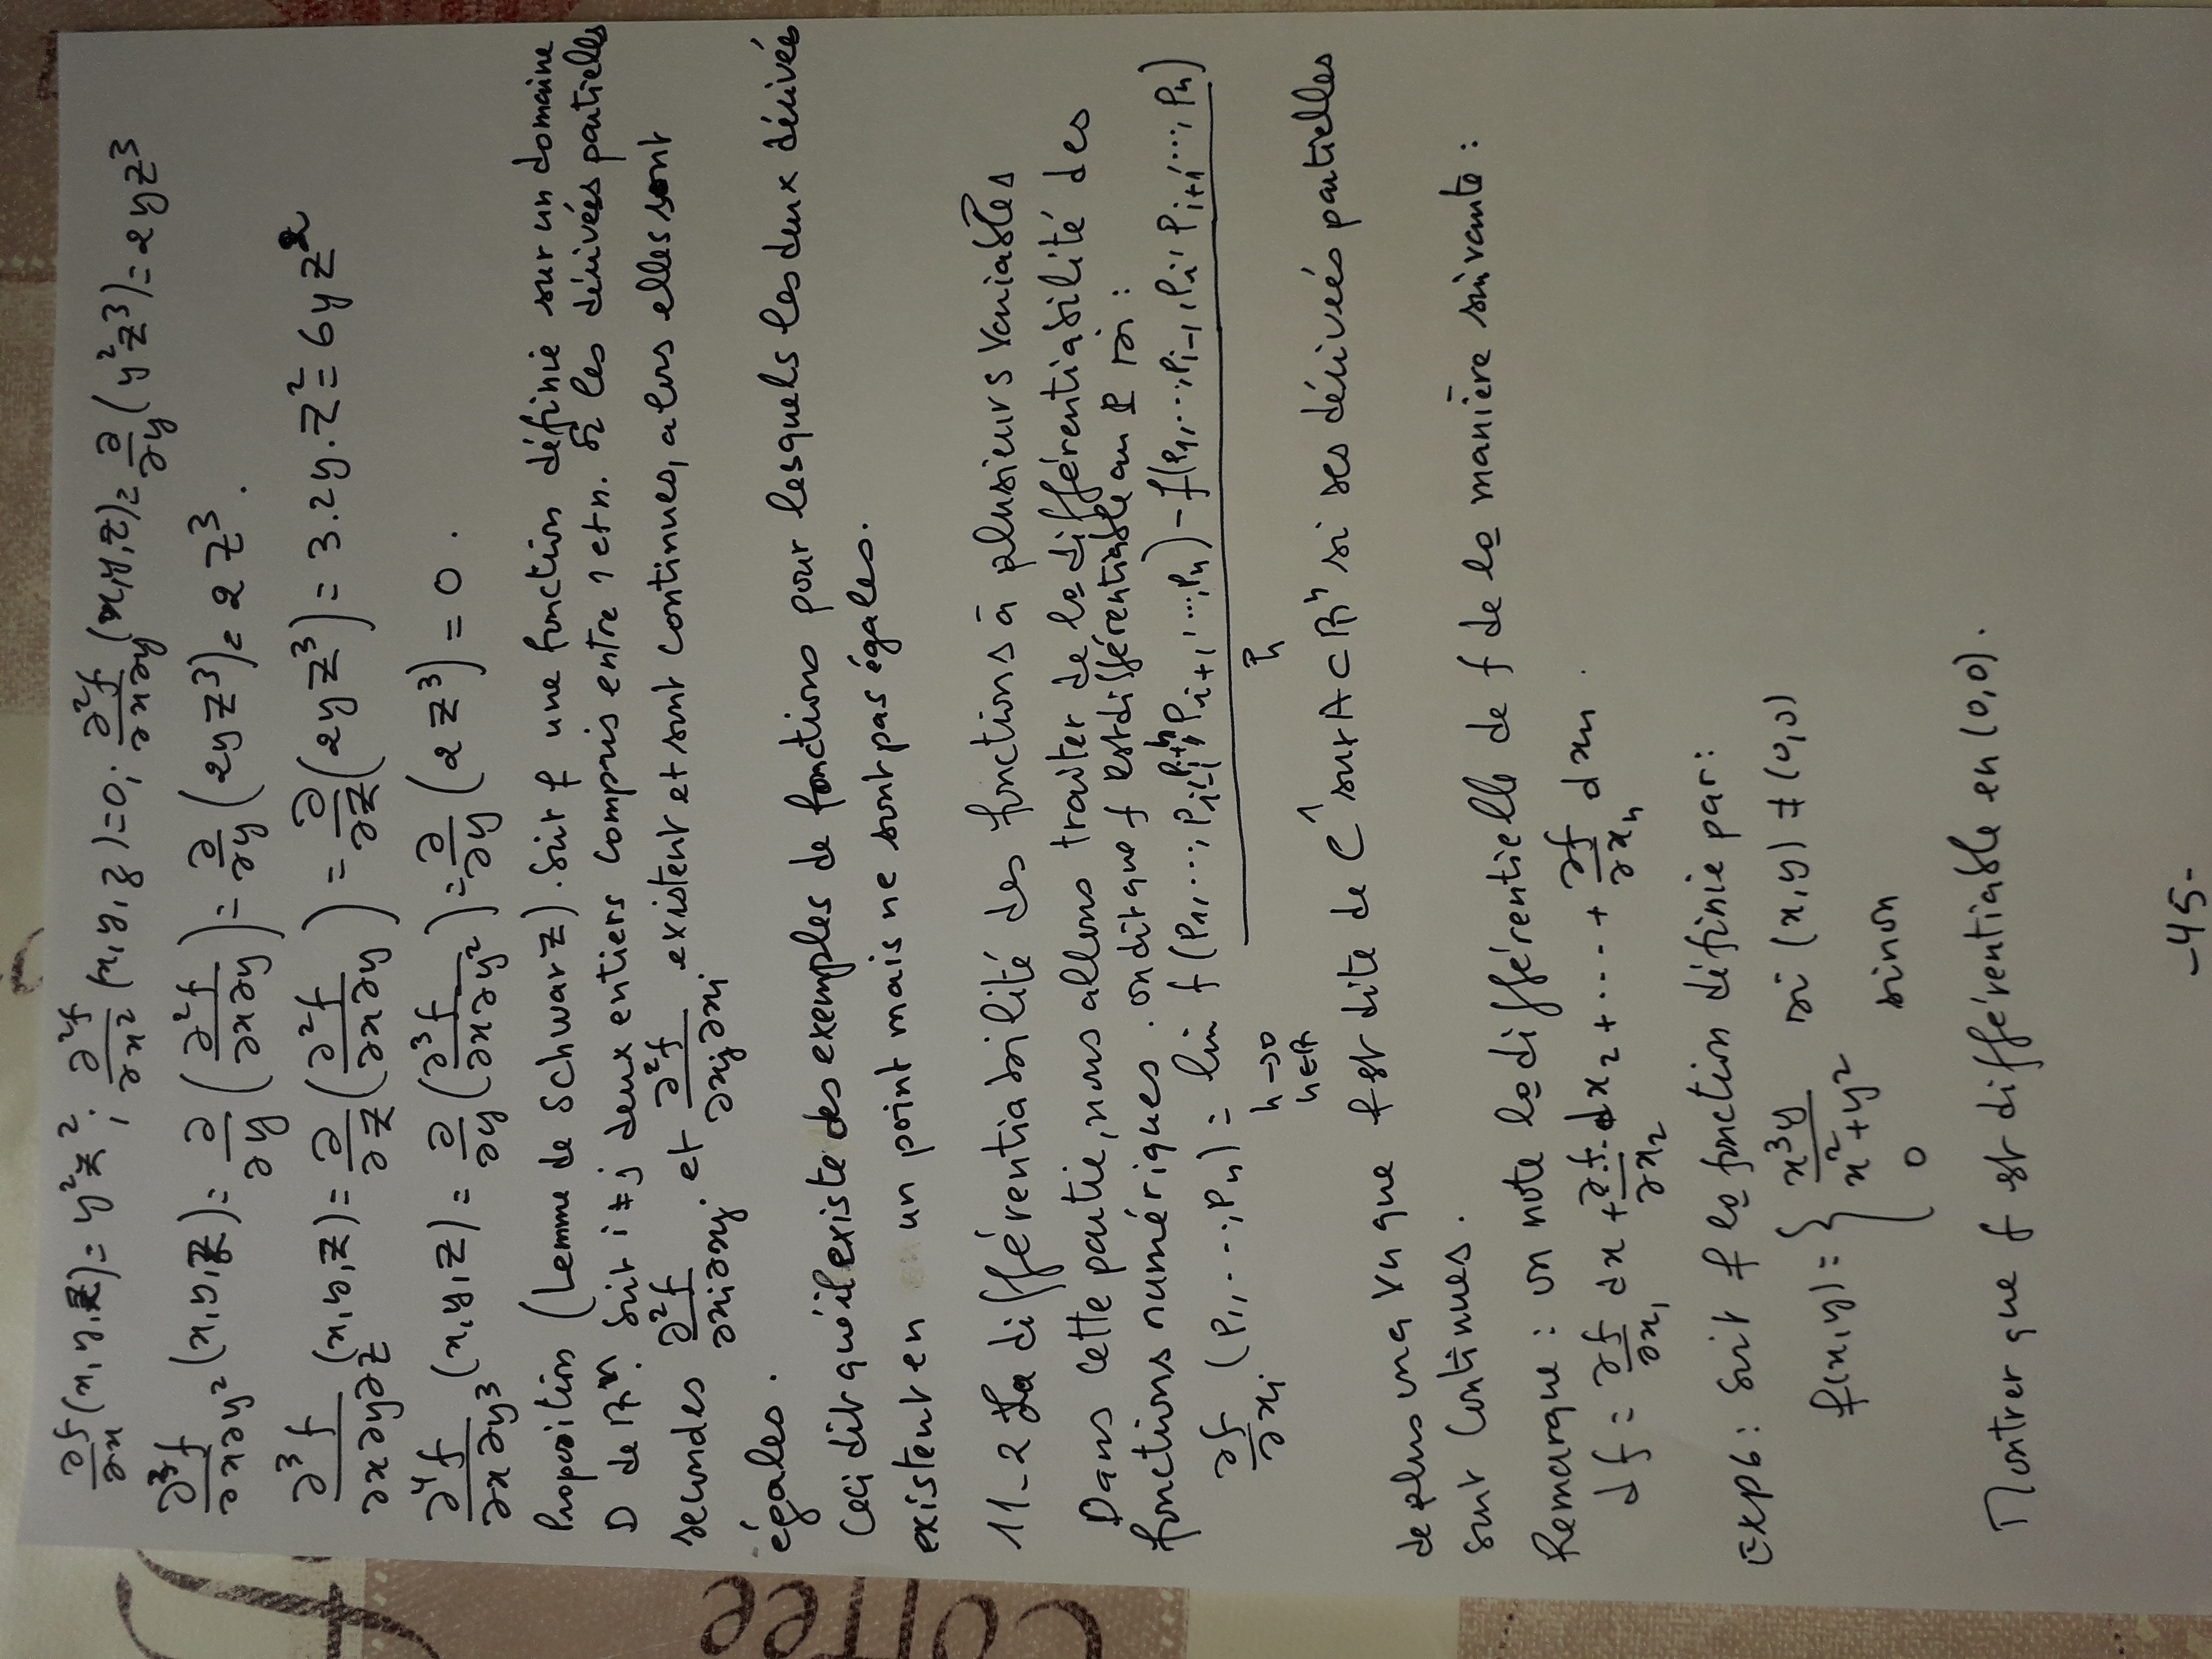 ∂f/∂x (x,y,z) = y²z²; ; ∂²f/∂x² (x,y,z) = 0; ∂²f/∂x∂y (x,y,z) = ∂/∂y (y²z³) = 2yz³
∂³f/∂x∂y² (x,y,z) = ∂/∂y (∂²f/∂x∂y) = ∂/∂y (2yz³) = 2z³.
∂³f/∂x∂y∂z (x,y,z) = ∂/∂z (∂²f/∂x∂y) = ∂/∂z (2yz³) = 3.2y.z² = 6yz²
∂⁴f/∂x∂y³ (x,y,z) = ∂/∂y (∂³f/∂x∂y²) = ∂/∂y (2z³) = 0.
Proposition (Lemme de Schwarz). Soit f une fonction définie sur un domaine
D de Rⁿ. Soit i ≠ j deux entiers compris entre 1 et n. Si les dérivées partielles
secondes ∂²f/∂xi∂xj. et ∂²f/∂xj∂xi existent et sont continues, alors elles sont
égales.
Ceci dit qu'il existe des exemples de fonctions pour lesquels les deux dérivées
existent en un point mais ne sont pas égales.
11-2 La différentiabilité des fonctions à plusieurs variables
Dans cette partie, nous allons traiter de la différentiabilité des
fonctions numériques. on dit que f est différentiable au P si:
∂f/∂xi (P1,...,Pn) = lim h→0 h∈R f(P1,...,Pi-1,Pi+h,Pi+1,...,Pn) - f(P1,...,Pi-1,Pi,Pi+1,...,Pn) / h
de plus on a vu que f est dite de C¹ sur A⊂Rⁿ si ses dérivées partielles
sont continues.
Remarque: on note la différentielle de f de la manière suivante:
df = ∂f/∂x1 dx + ∂f/∂x2 dx2 + ... + ∂f/∂xn dxn.
Exp6: Soit f la fonction définie par:
f(x,y) = { x³y/x²+y² si (x,y) ≠ (0,0)
0 sinon
Montrer que f est différentiable en (0,0).
-45-
coffee